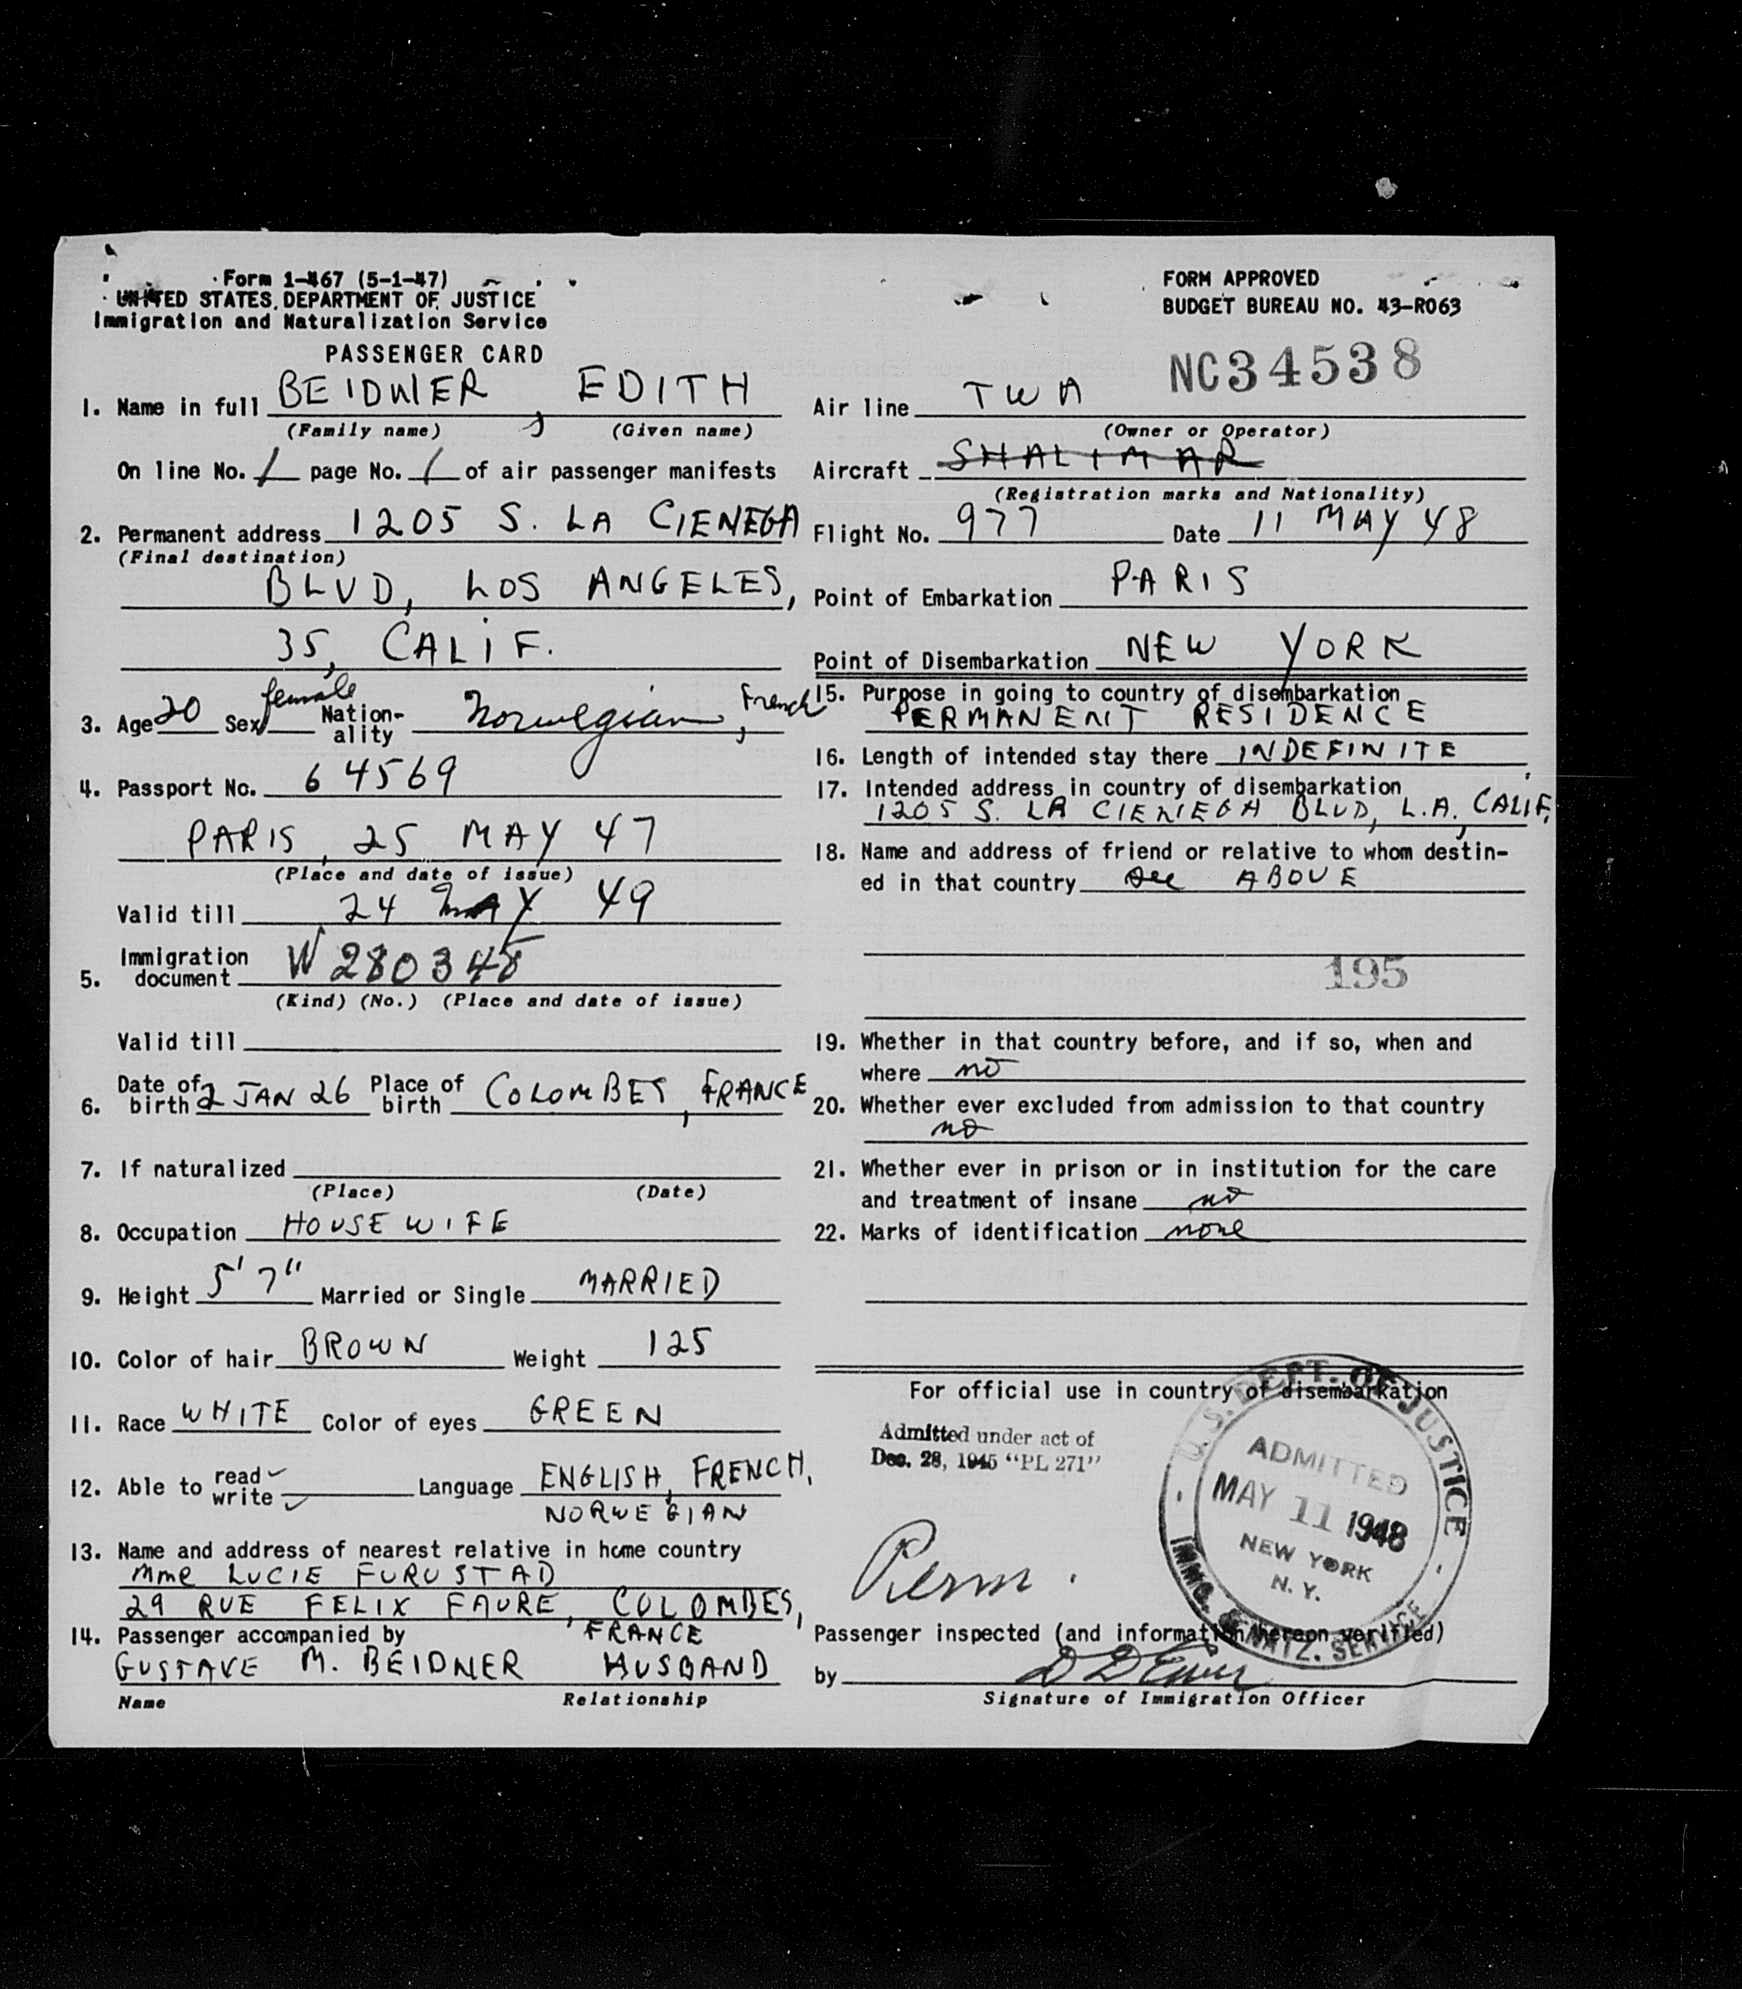 Form I-467 (5-1-47)
UNITED STATES DEPARTMENT OF JUSTICE
Immigration and Naturalization Service
PASSENGER CARD
FORM APPROVED
BUDGET BUREAU NO. 43-R063
NC34538
1. Name in full BEIDNER, EDITH
(Family name) (Given name)
On line No. 1 page No. 1 of air passenger manifests
2. Permanent address 1205 S. LA CIENEGA
(Final destination)
BLVD, LOS ANGELES,
35, CALIF.
3. Age 20 Sex female Nationality Norwegian, French
4. Passport No. 64569
PARIS, 25 MAY 47
(Place and date of issue)
Valid till 24 MAY 49
5. Immigration document W 280348
(Kind) (No.) (Place and date of issue)
Valid till
6. Date of birth 2 JAN 26 Place of birth COLOMBES, FRANCE
7. If naturalized
(Place) (Date)
8. Occupation HOUSEWIFE
9. Height 5' 7" Married or Single MARRIED
10. Color of hair BROWN Weight 125
11. Race WHITE Color of eyes GREEN
12. Able to read ✓ write ✓ Language ENGLISH, FRENCH,
NORWEGIAN
13. Name and address of nearest relative in home country
Mme LUCIE FURUSTAD
29 RUE FELIX FAURE, COLOMBES,
FRANCE
14. Passenger accompanied by
GUSTAVE M. BEIDNER HUSBAND
Name Relationship
Air line TWA
(Owner or Operator)
Aircraft SHALIMAR
(Registration marks and Nationality)
Flight No. 977 Date 11 MAY 48
Point of Embarkation PARIS
Point of Disembarkation NEW YORK
15. Purpose in going to country of disembarkation
PERMANENT RESIDENCE
16. Length of intended stay there INDEFINITE
17. Intended address in country of disembarkation
1205 S. LA CIENEGA BLVD, L.A., CALIF.
18. Name and address of friend or relative to whom destin-
ed in that country see ABOVE
195
19. Whether in that country before, and if so, when and
where no
20. Whether ever excluded from admission to that country
no
21. Whether ever in prison or in institution for the care
and treatment of insane no
22. Marks of identification none
For official use in country of disembarkation
Admitted under act of
Dec. 28, 1945 "PL 271"
U.S. DEPT. OF JUSTICE
ADMITTED
MAY 11 1948
NEW YORK
N.Y.
IMMG. & NATZ. SERVICE
Perm.
Passenger inspected (and information thereon verified)
by
Signature of Immigration Officer